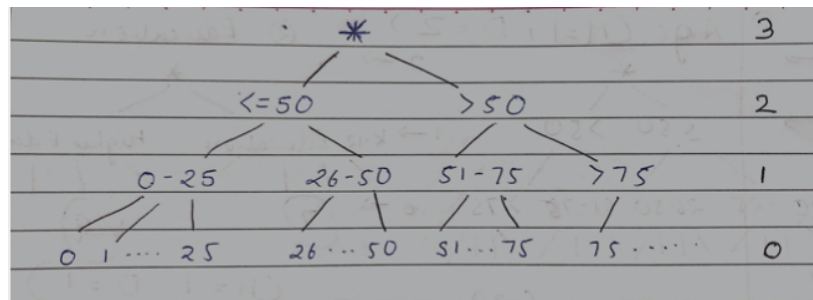 * 3
<=50 >50 2
0-25 26-50 51-75 >75 1
0 1 .... 25 26 ... 50 51 ... 75 75 ...... 0